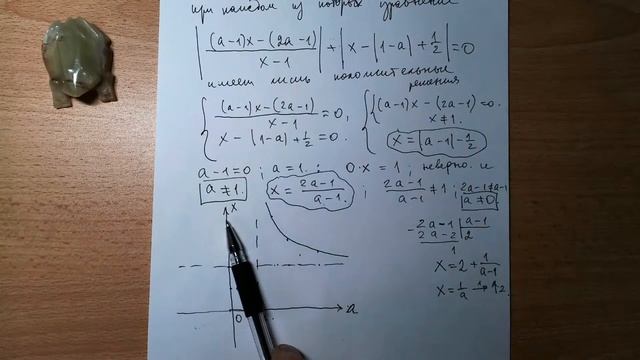 при каждом из которых уравнение
|((a-1)x-(2a-1))/(x-1)| + |x-|1-a|+1/2| = 0
имеет лишь положительные
решения
{ ((a-1)x-(2a-1))/(x-1) = 0, { (a-1)x-(2a-1)=0.
x-|1-a|+1/2=0. x≠1.
x=|a-1|-1/2
a-1=0; a=1.: 0·x=1; неверно. и
a≠1. x=(2a-1)/(a-1). ; (2a-1)/(a-1)≠1; 2a-1≠a-1
a≠0
2a-1 | a-1
2a-2 | 2
1
x=2+1/(a-1)
x=1/a 1→ ↑2.
x
a
0